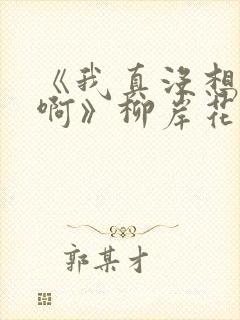 《我真没想
啊》柳岸花
郭某才